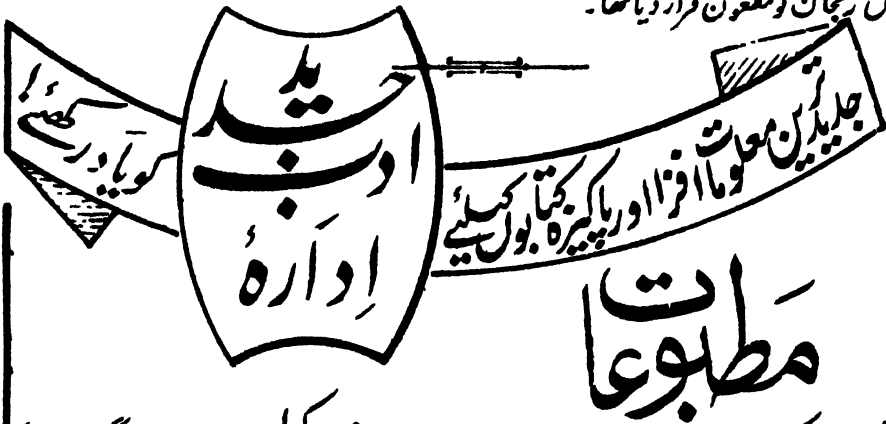 کو ملعون قرار دیا تھا۔
جدید ترین معلومات افزا اور پاکیزہ کتابوں کیلئے
ادارۂ
ادب
جدید
کو یاد رکھئے!
مطبوعات